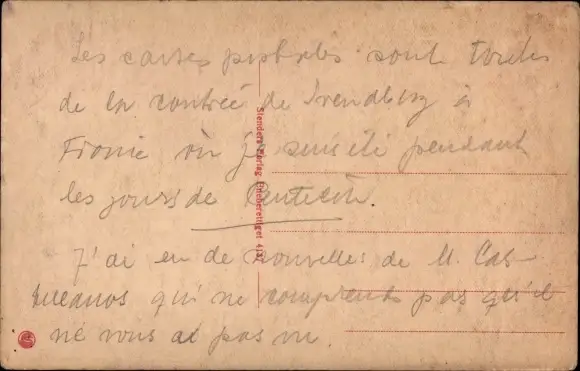 Les cartes postales sont toutes
de la contrée de Svendborg à
Fionie où j'ai été pendant
les jours de Pentecôte.
J'ai eu de nouvelles de M. Cas-
qui ne comprends pas qu'il
ne vous a pas vu.
Stenders Forlag Eneberettiget